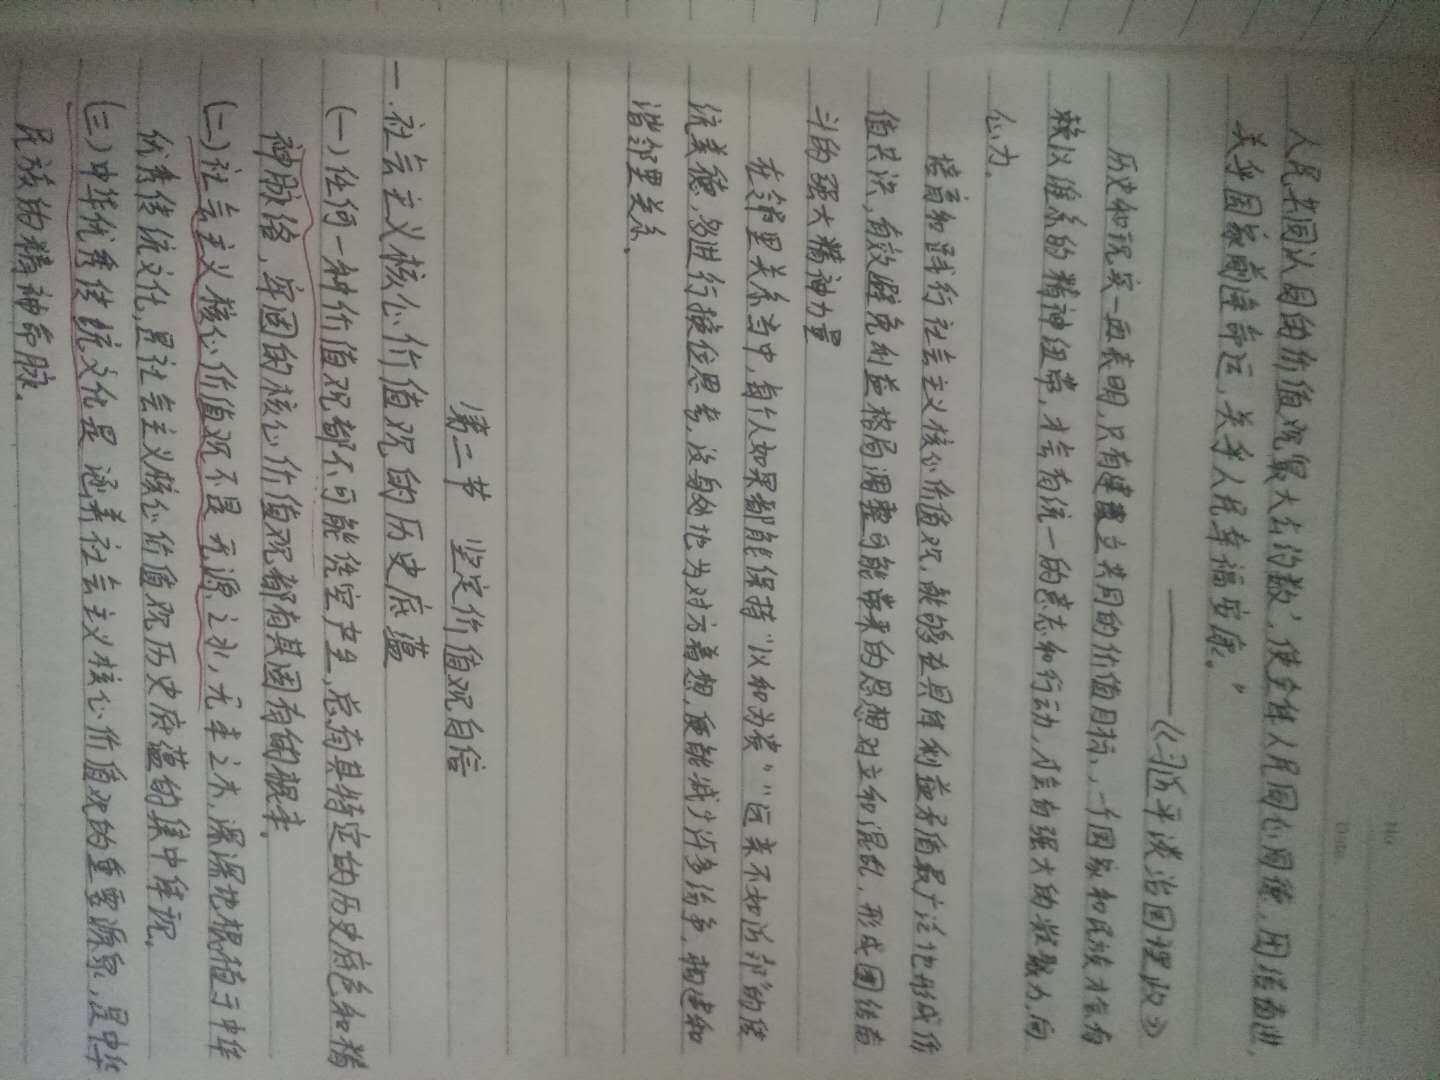 人民共同认同的价值观最大公约数,使全体人民同心同德、团结奋进,
关乎国家前途命运,关乎人民幸福安康。”
———《习近平谈治国理政》
历史和现实一再表明,只有建立共同的价值目标,一个国家和民族才会有
赖以维系的精神纽带,才会有统一的意志和行动,才会有强大的凝聚力、向
心力。
培育和践行社会主义核心价值观,能够在具体利益矛盾最广泛地形成价
值共识,有效避免利益格局调整可能带来的思想对立和混乱,形成团结奋
斗的强大精神力量
在邻里关系当中,每个人如果都能保持“以和为贵”“远亲不如近邻”的传
统美德,多进行换位思考,设身处地为对方着想,便能减少许多纷争,构建和
谐邻里关系、
第二节 坚定价值观自信
一.社会主义核心价值观的历史底蕴
(一)任何一种价值观都不可能凭空产生,总有其特定的历史底色和精
神脉络,牢固的核心价值观都有其固有的根本。
(二)社会主义核心价值观不是无源之水,无本之木,深深地根植于中华
优秀传统文化,是社会主义核心价值观历史底蕴的集中体现。
(三)中华优秀传统文化是涵养社会主义核心价值观的重要源泉,是中华
民族的精神命脉。